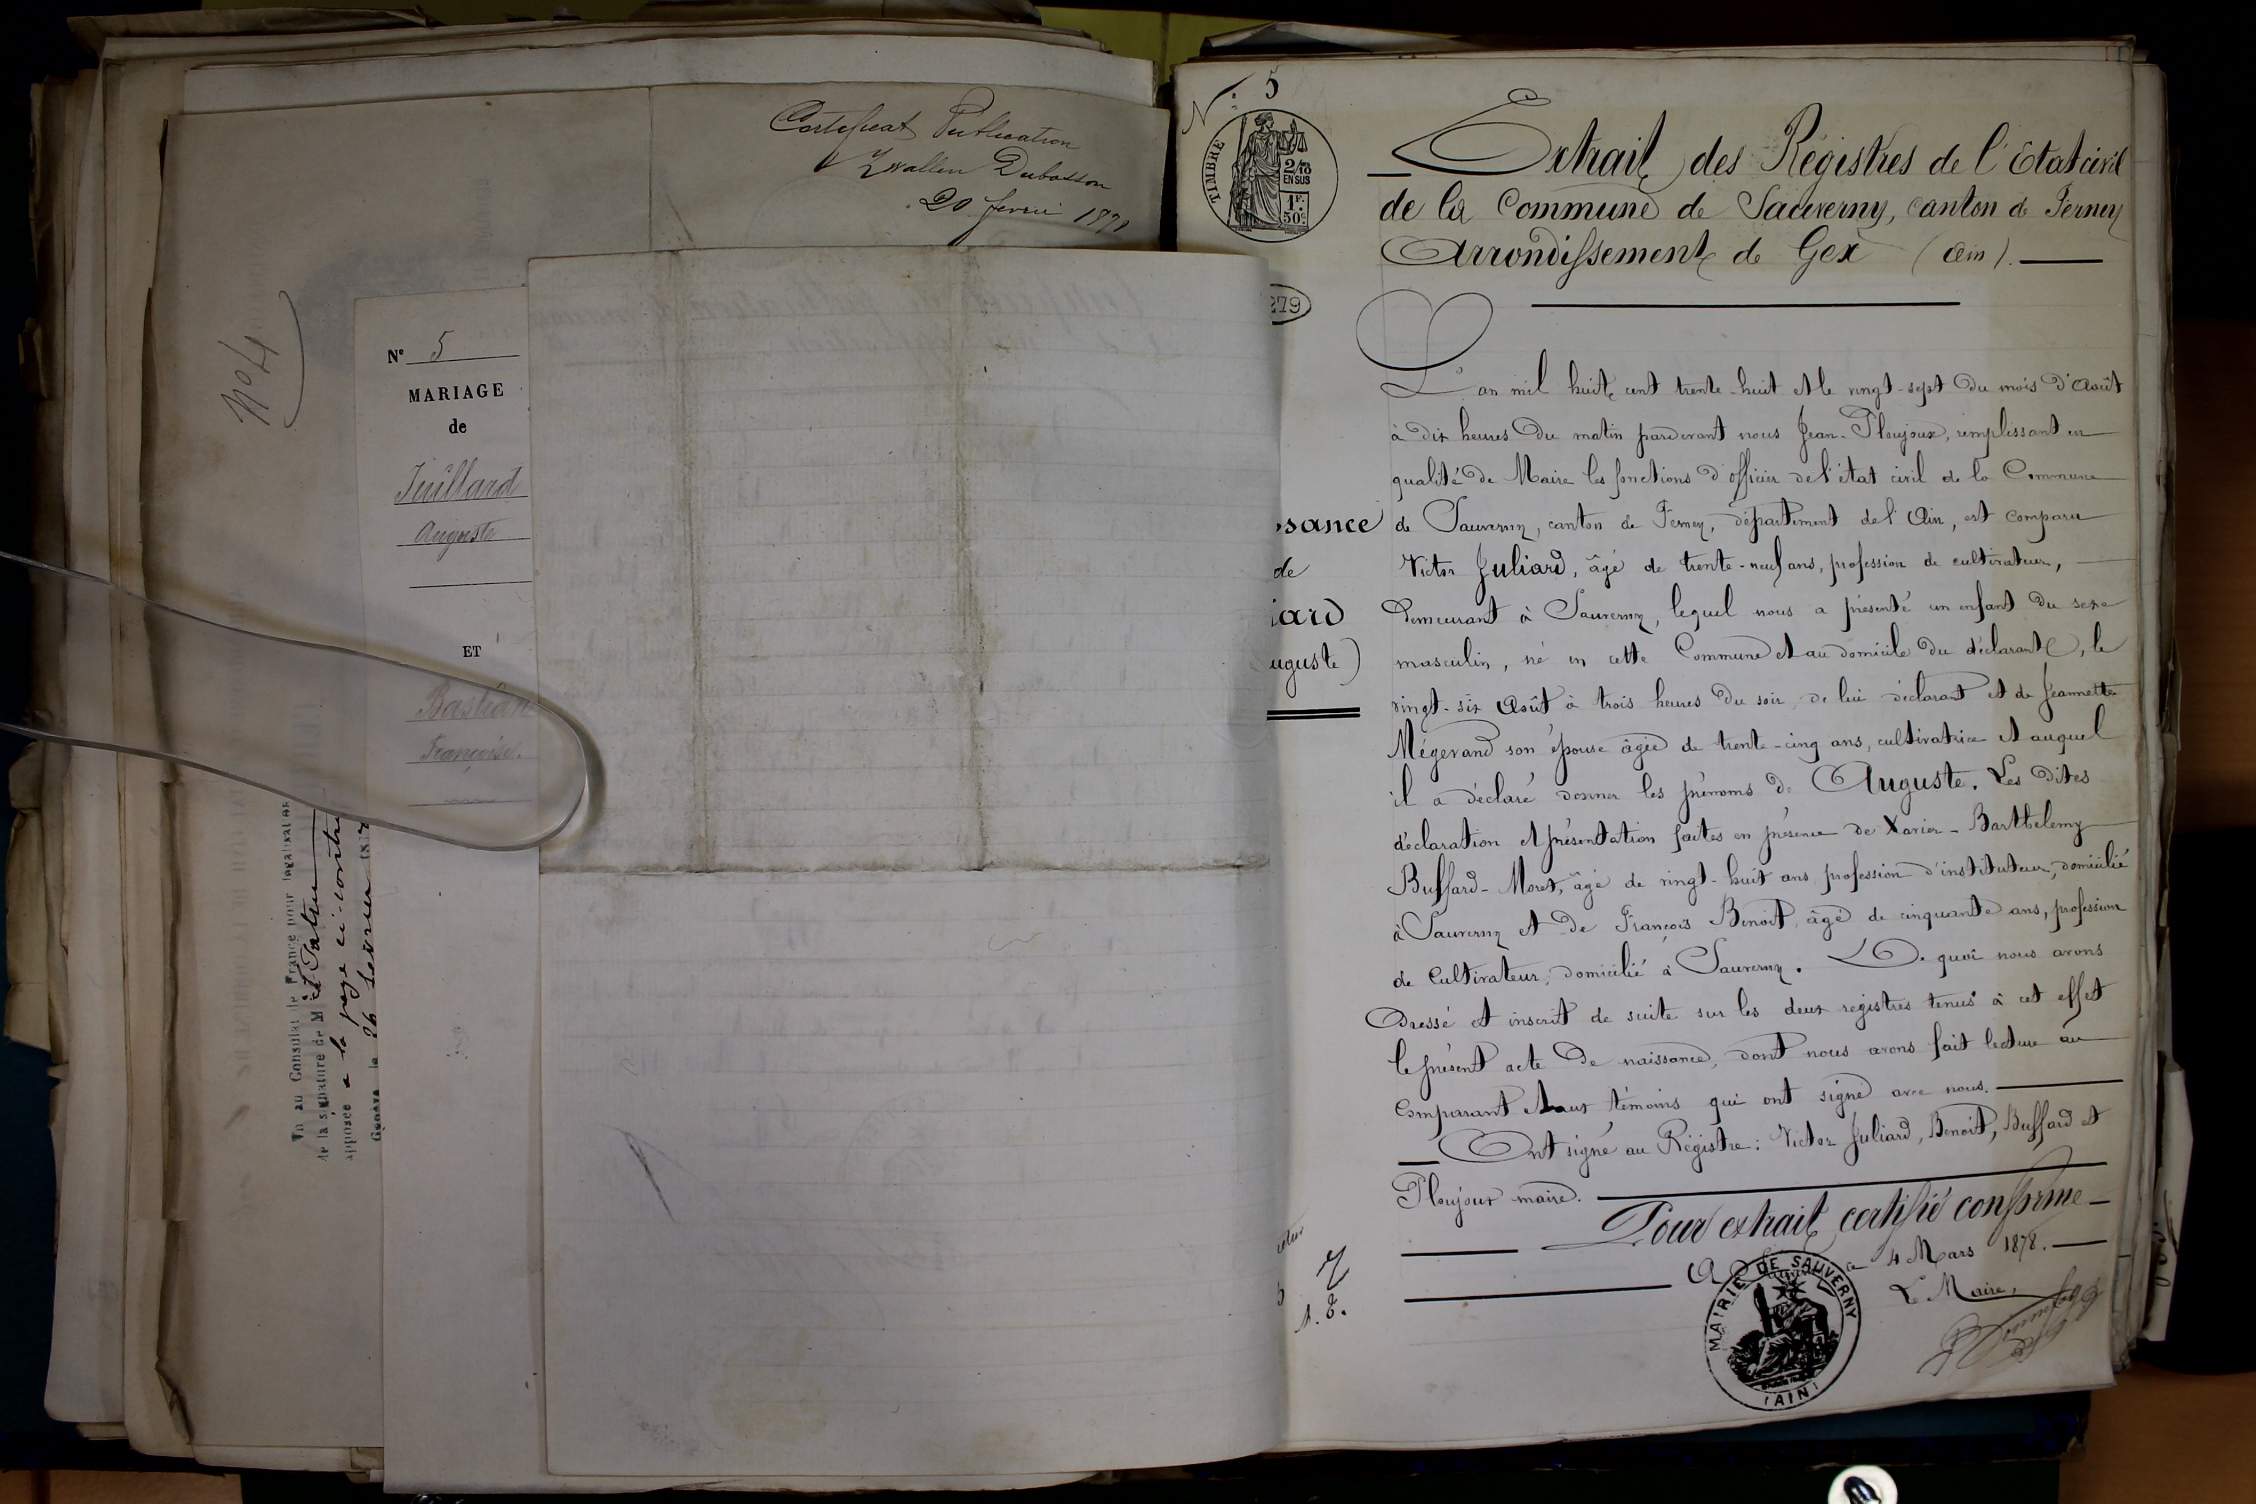 Certificat Publication
Zwallen Dubosson
20 fevrier 1878
No 4
No 5
MARIAGE
de
Juillard
Auguste
ET
Bastian
Françoise.
Vu au Consulat de France pour légalisation
de la signature de M
apposée a la page ci-contre
Genève le 26 fevrier 187
No: 5
TIMBRE
2/10
EN SUS
1F.
50c.
Extrait des Régistres de l'Etat civil
de la Commune de Sauverny, canton de Ferney
Arrondissement de Gex (Ain).
279
ssance
de
iard
uguste)
L'an mil huit cent trente-huit et le vingt-sept du mois d'Août
à dix heures du matin pardevant nous Jean Ploujoux, remplissant en
qualité de Maire les fonctions d'officier de l'état civil de la Commune
de Sauverny, canton de Ferney, département de l'Ain, est comparu
Victor Juliard, âgé de trente-neuf ans, profession de cultivateur,
demeurant à Sauverny, lequel nous a présenté un enfant du sexe
masculin, né en cette Commune et au domicile du déclarant, le
vingt-six Août à trois heures du soir, de lui déclarant et de Jeannette
Mégevand son épouse âgée de trente-cinq ans, cultivatrice et auquel
il a déclaré donner les prénoms de Auguste. Les dites
déclaration et présentation faites en présence de Xavier-Barthelemy
Buffard-Moret, âgé de vingt-huit ans, profession d'instituteur, domicilié
à Sauverny et de François Benoit, âgé de cinquante ans, profession
de cultivateur, domicilié à Sauverny. De quoi nous avons
dressé et inscrit de suite sur les deux registres tenus à cet effet
le présent acte de naissance, dont nous avons fait lecture au
comparant et aux témoins qui ont signé avec nous.
Ont signé au Régistre: Victor Juliard, Benoit, Buffard et
Ploujoux maire.
Pour extrait certifié conforme
A Sauverny le 4 Mars 1878.
Le Maire,
MAIRIE DE SAUVERNY
(AIN)